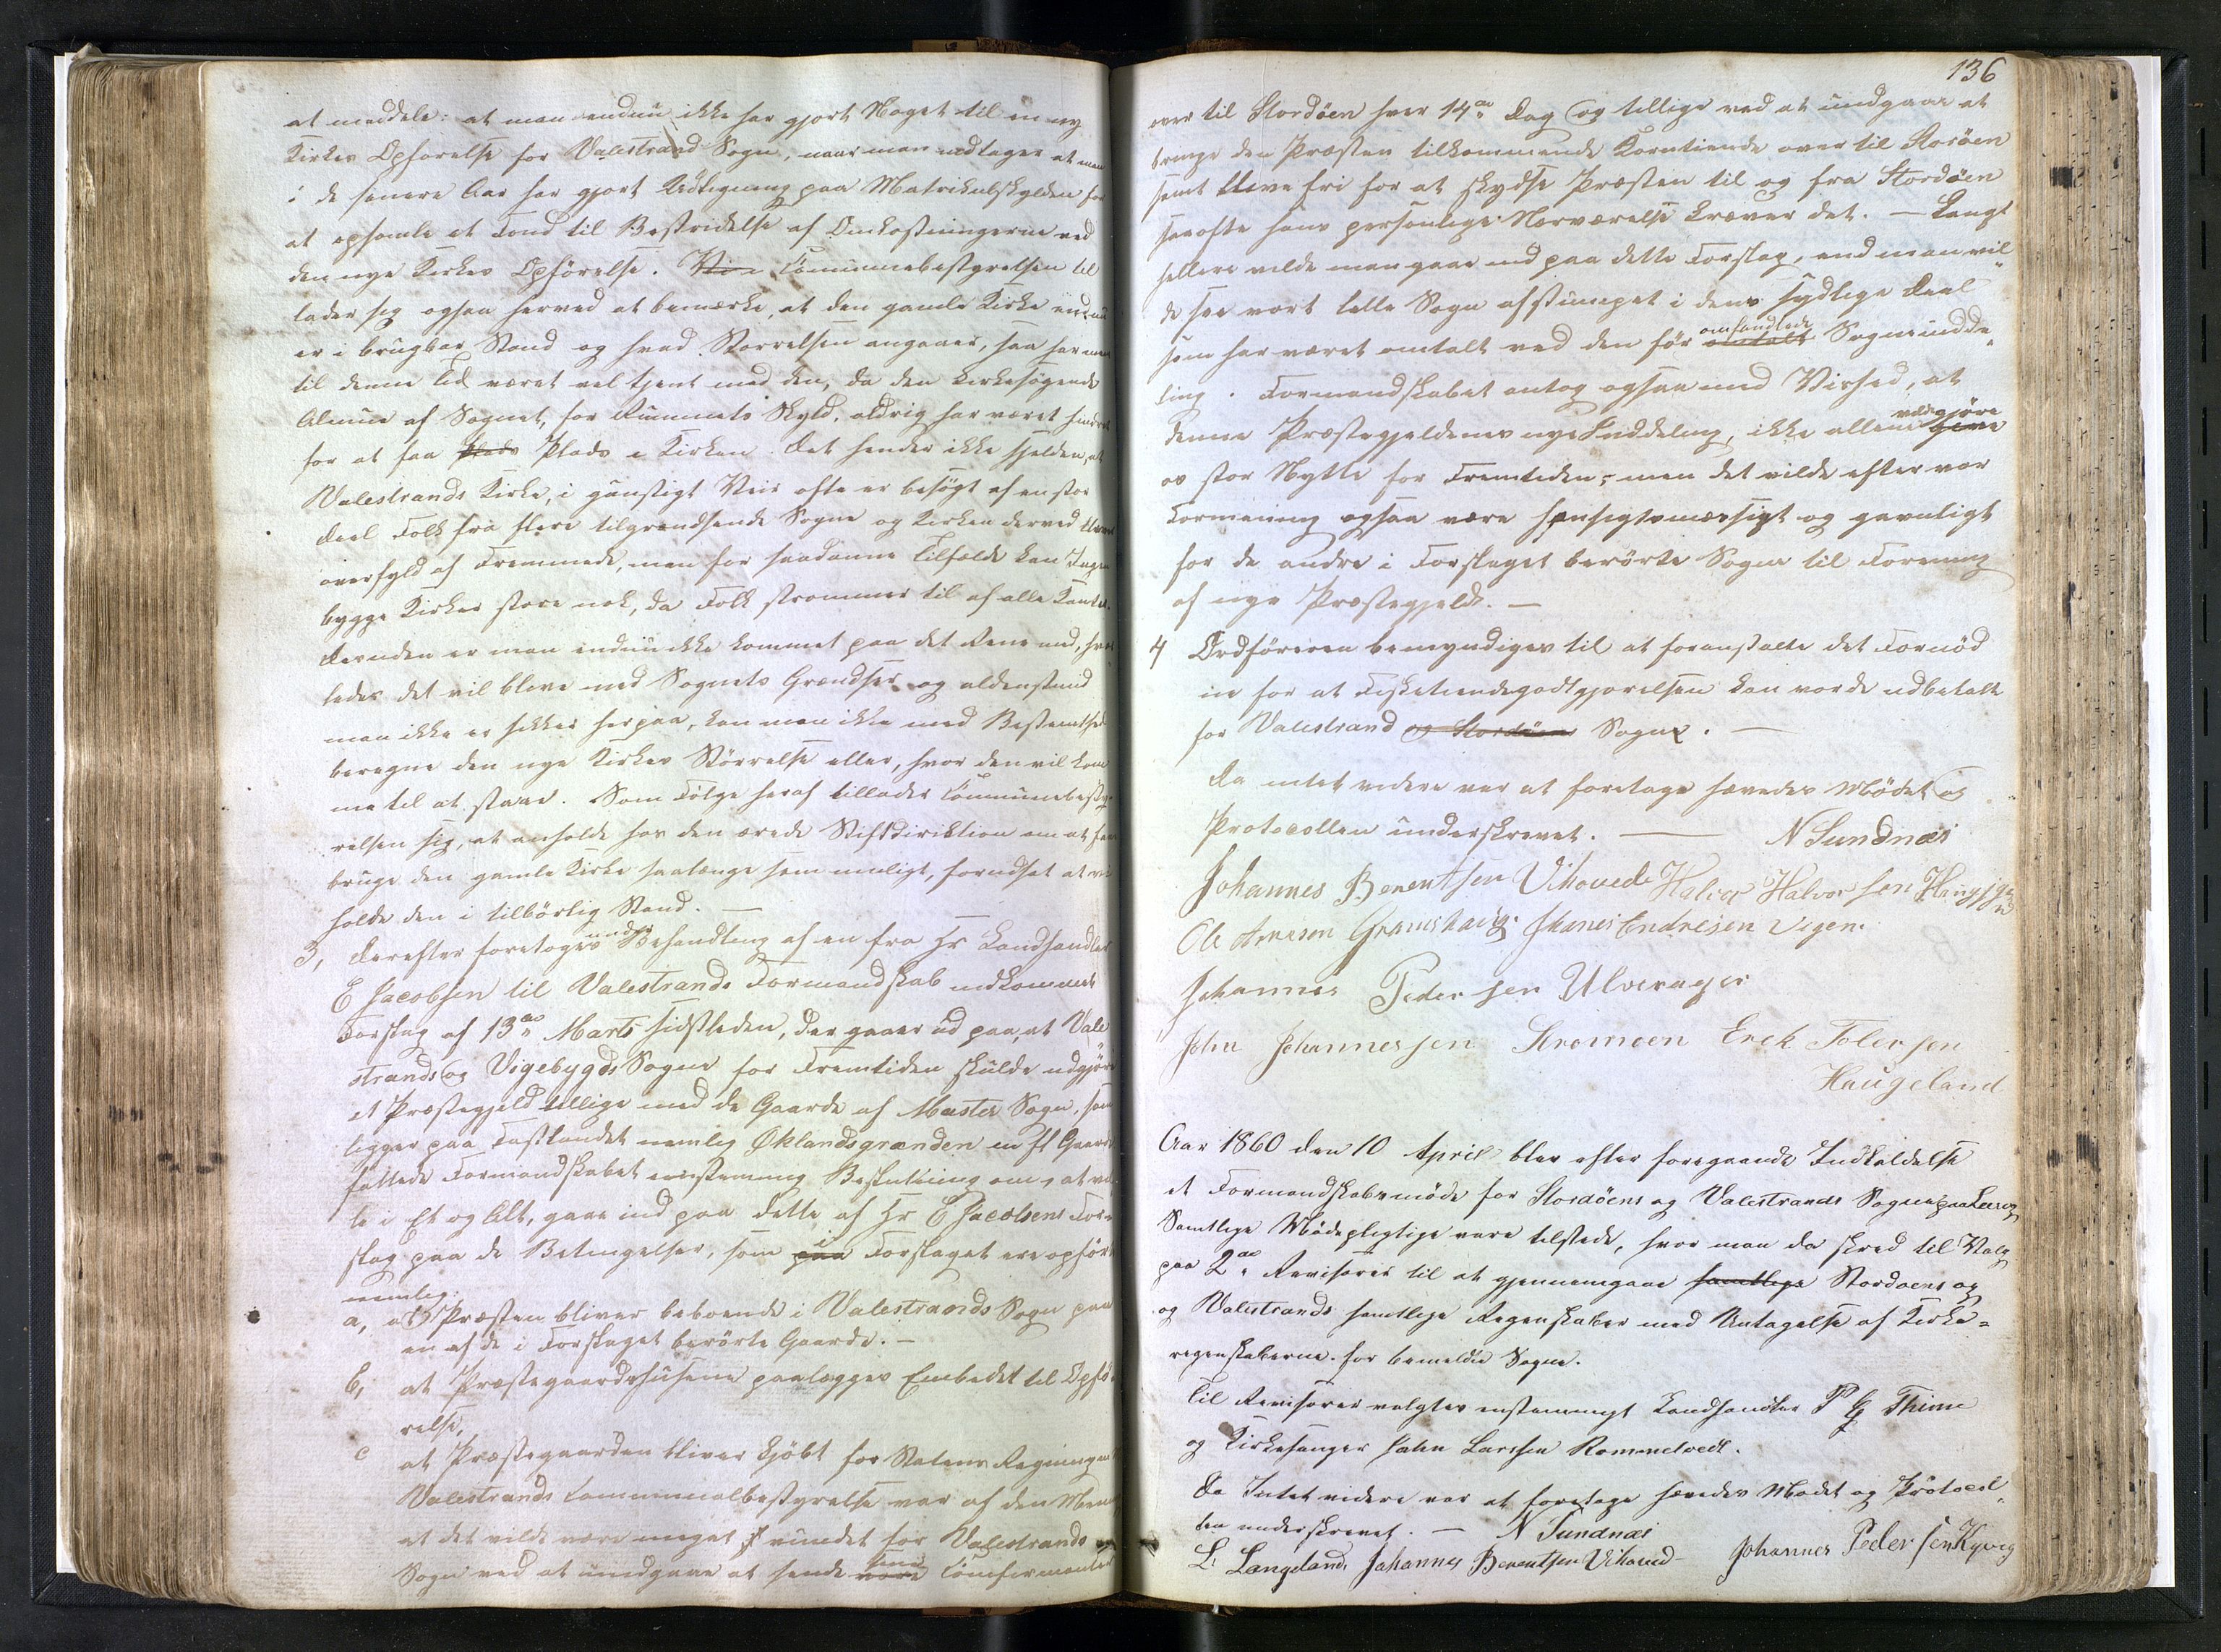 at meddele: at man endnu ikke har gjort Noget til en ny
Kirkes Opførelse for Valestrand Sogn, naar man undtager at man
i de senere Aar har gjort Udligning paa Matrikulskylden for
at opsamle et Fond til Bestridelse af Omkostningerne ved
den nye Kirkes Opførelse. Communebestyrelsen til
lader sig ogsaa herved at bemærke, at den gamle Kirke endnu
er i brugbar Stand og hvad Størrelsen angaaer, saa har man
til denne Tid været vel tjent med den, da den kirkesøgende
Almue af Sognet, for Rummets Skyld, aldrig har været hindret
for at faa Plads Plads i Kirken. Det hender ikke sjelden, at
Valestrands Kirke, i gunstigt Veir ofte er besøgt af en stor
Deel Folk fra flere tilgrændsende Sogne og Kirken derved bliver
overfyld af Fremmede, men for saadanne Tilfælde kan Ingen
bygge Kirker store nok, da Folk strømmer til af alle Kanter.
Desuden er man endnu ikke kommet paa det Rene med, hvor
ledes det vil blive med Sognets Grændser og aldenstund
man ikke er sikker herpaa, kan man ikke med Bestemthed
beregne den nye Kirkes Størrelse eller, hvor den vil kom
me til at staae. Som Følge heraf tillader Communebesty-
relsen sig, at anholde hos den ærede Stiftdirektion om at faa
bruge den gamle Kirke saalænge som muligt, forudsat at vi
holde den i tilbørlig Stand. —
3, Derefter foretoges under Behandling af en fra Hr Landhandler
E Jacobsen til Valestrands Formandskab indkommet
Forslag af 13de Marts sidstleden, der gaaer ud paa, at Vale
strands og Vigebygds Sogne for Fremtiden skulde udgjøre
et Præstegjeld tillige med de Gaarde af Møster Sogn, som
ligger paa Fastlandet nemlig Øklandsgrænden
fattede Formandskabet eenstemmig Beslutning om, at vil
le i Et og Alt, gaae ind paa dette af Hr E Jacobsens For-
slag paa de Betingelser, som paa i Forslaget ere opført
nemlig:
a, at Præsten bliver beboende i Valestrands Sogn paa
en af de i Forslaget berørte Gaarde. —
b, at Præstegaardshusene paalægges Embedet til Opfø-
relse,
c at Præstegaarden bliver kjøbt for Statens Regning
Valestrands Communalbestyrelse var af den Mening
at det vilde være meget vundet for Valestrands
Sogn ved at undgaae at sende sine Confirmanter
136
over til Stordøen hver 14de Dag og tillige ved at undgaae at
bringe den Præsten tilkommende Korntiende over til Storøen
samt blive fri for at skydse Præsten til og fra Stordøen
saaofte hans personlige Nærværelse kræver det. — Langt
hellere vilde man gaae ind paa dette Forslag, end man vil
de see vort lille Sogn afstumpet i dens sydlige Deel
som har været omtalt ved den før omtalt omhandlede Sogneindde
ling. Formandskabet antog ogsaa med Vished, at
denne Præstegjeldenes nye Inddeling, ikke allene vilde gjøre
os stor Nytte for Fremtiden, men det vilde efter vor
Formening ogsaa være hensigtsmæssigt og gavnligt
for de andre i Forslaget berørte Sogne til Forening
af nye Præstegjeld. —
4 Ordføreren bemyndiges til at foranstalte det Fornød
ne for at Fisketiendegodtgjørelsen kan vorde udbetalt
for Valestrand og Stordøens Sogne. —
Da intet videre var at foretage hævedes Mødet og
Protocollen underskrevet. — N Sundnæs
Johannes Berentsen Vihovede Halvor Halvorsen
Ole Arnesen Johanes Endresen Vigen.
Johannes Pedersen Ulveragir
John Johannessen Strømøen Erek Tolersen
Haugeland
Aar 1860 den 10 April blev efter foregaaende Indkaldelse
et Formandskabsmøde for Stordøens og Valestrands Sogne paa Leervig
Samtlige Mødepligtige vare tilstede, hvor man da skred til Valg
paa 2de Revisorer til at gjennemgaae samtlige Stordøens og
og Valestrands samtlige Regnskaber med Undtagelse af Kirke-
regnskaberne for bemeldte Sogne.
Til Revisorer valgtes enstemmigt Landhandler P G Thime
og Kirkesanger John Larssen Rommetvedt.
Da Intet videre var at foretage hævedes Mødet og Protocol-
len underskrevet. — N Sundnæs
L. Langeland, Johannes Berentsen Vihoved - Johannes Pedersen Kyvig